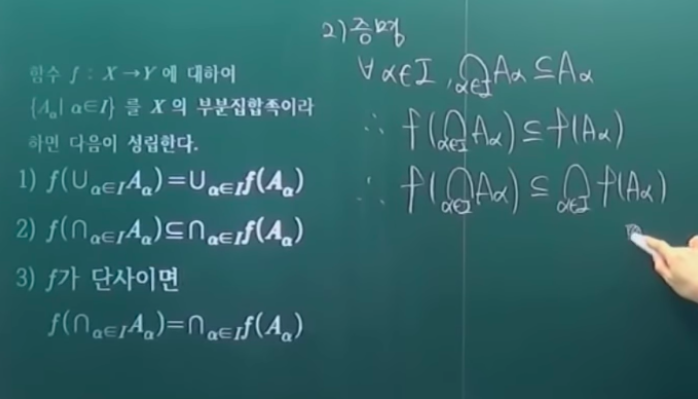 함수 f : X → Y 에 대하여
{Aα | α∈I} 를 X 의 부분집합족이라
하면 다음이 성립한다.
1) f(∪α∈I Aα)=∪α∈I f(Aα)
2) f(∩α∈I Aα)⊆∩α∈I f(Aα)
3) f가 단사이면
f(∩α∈I Aα)=∩α∈I f(Aα)
2) 증명
∀α∈I, ∩α∈I Aα ⊆ Aα
∴ f(∩α∈I Aα) ⊆ f(Aα)
∴ f(∩α∈I Aα) ⊆ ∩α∈I f(Aα)